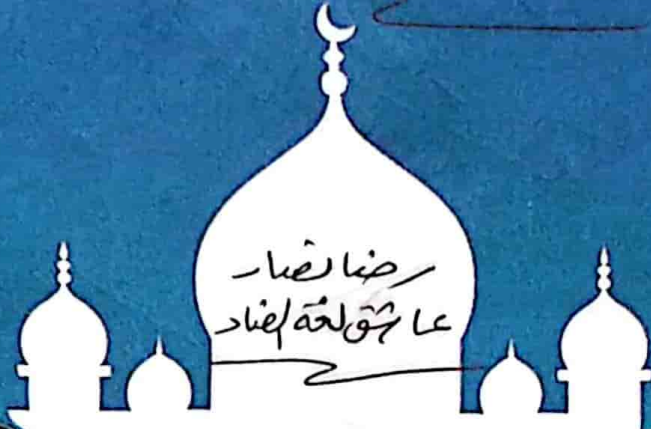 رضا نصار
عاشق لغة الضاد